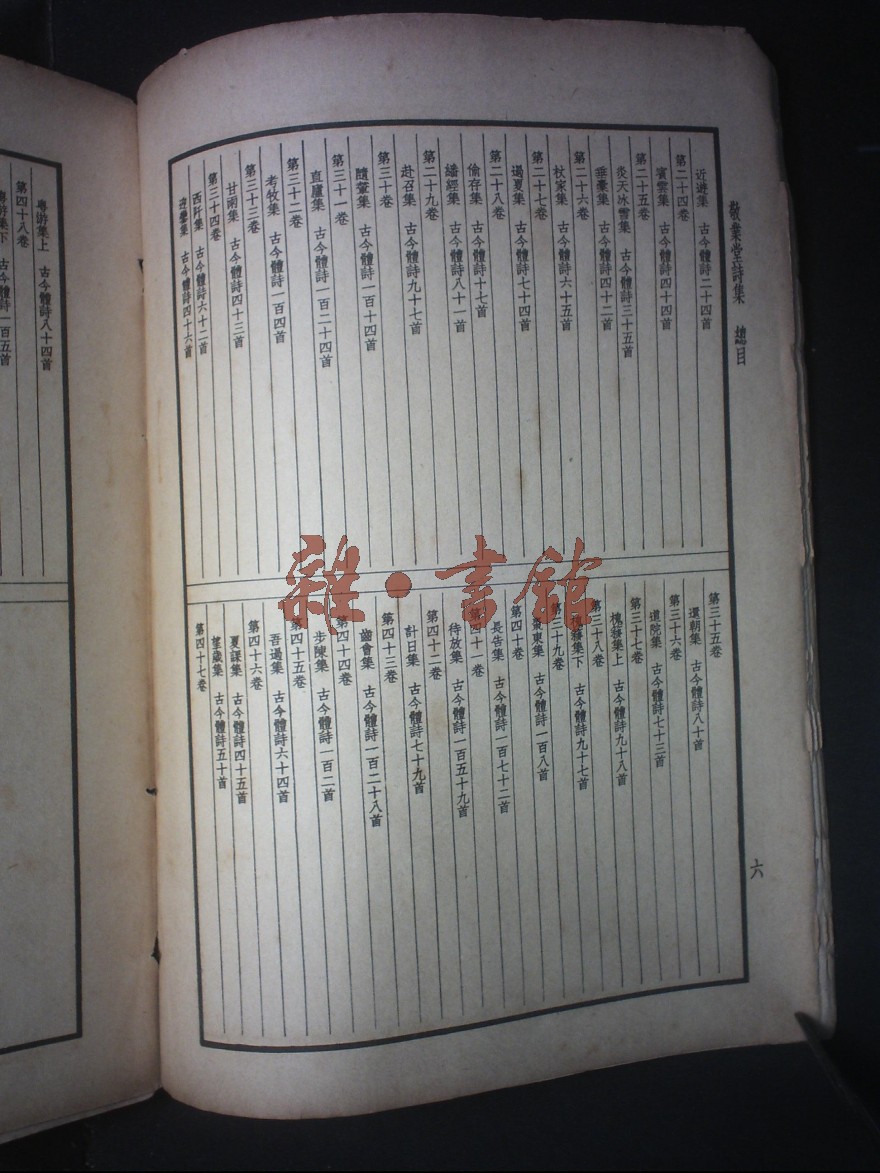 敬業堂詩集 總目
六
近遊集 古今體詩二十四首
第二十四卷
賓雲集 古今體詩四十四首
第二十五卷
炎天冰雪集 古今體詩三十五首
垂橐集 古今體詩四十二首
第二十六卷
杖家集 古今體詩六十五首
第二十七卷
遏夏集 古今體詩七十四首
第二十八卷
偷存集 古今體詩十七首
繙經集 古今體詩八十一首
第二十九卷
赴召集 古今體詩九十七首
第三十卷
隨輦集 古今體詩一百十四首
第三十一卷
直廬集 古今體詩一百二十四首
第三十二卷
考牧集 古今體詩一百四首
第三十三卷
甘雨集 古今體詩四十三首
第三十四卷
西阡集 古今體詩六十二首
集 古今體詩四十六首
第三十五卷
還朝集 古今體詩八十首
第三十六卷
道院集 古今體詩七十三首
第三十七卷
槐簃集上 古今體詩九十八首
第三十八卷
槐簃集下 古今體詩九十七首
第三十九卷
棗東集 古今體詩一百八首
第四十卷
長告集 古今體詩一百七十二首
第四十一卷
待放集 古今體詩一百五十九首
第四十二卷
計日集 古今體詩七十九首
第四十三卷
齒會集 古今體詩一百二十八首
第四十四卷
步陳集 古今體詩一百二首
第四十五卷
吾過集 古今體詩六十四首
第四十六卷
夏課集 古今體詩四十五首
望歲集 古今體詩五十首
第四十七卷
粵游集上 古今體詩八十四首
第四十八卷
粵游集下 古今體詩一百五首
雜·書館